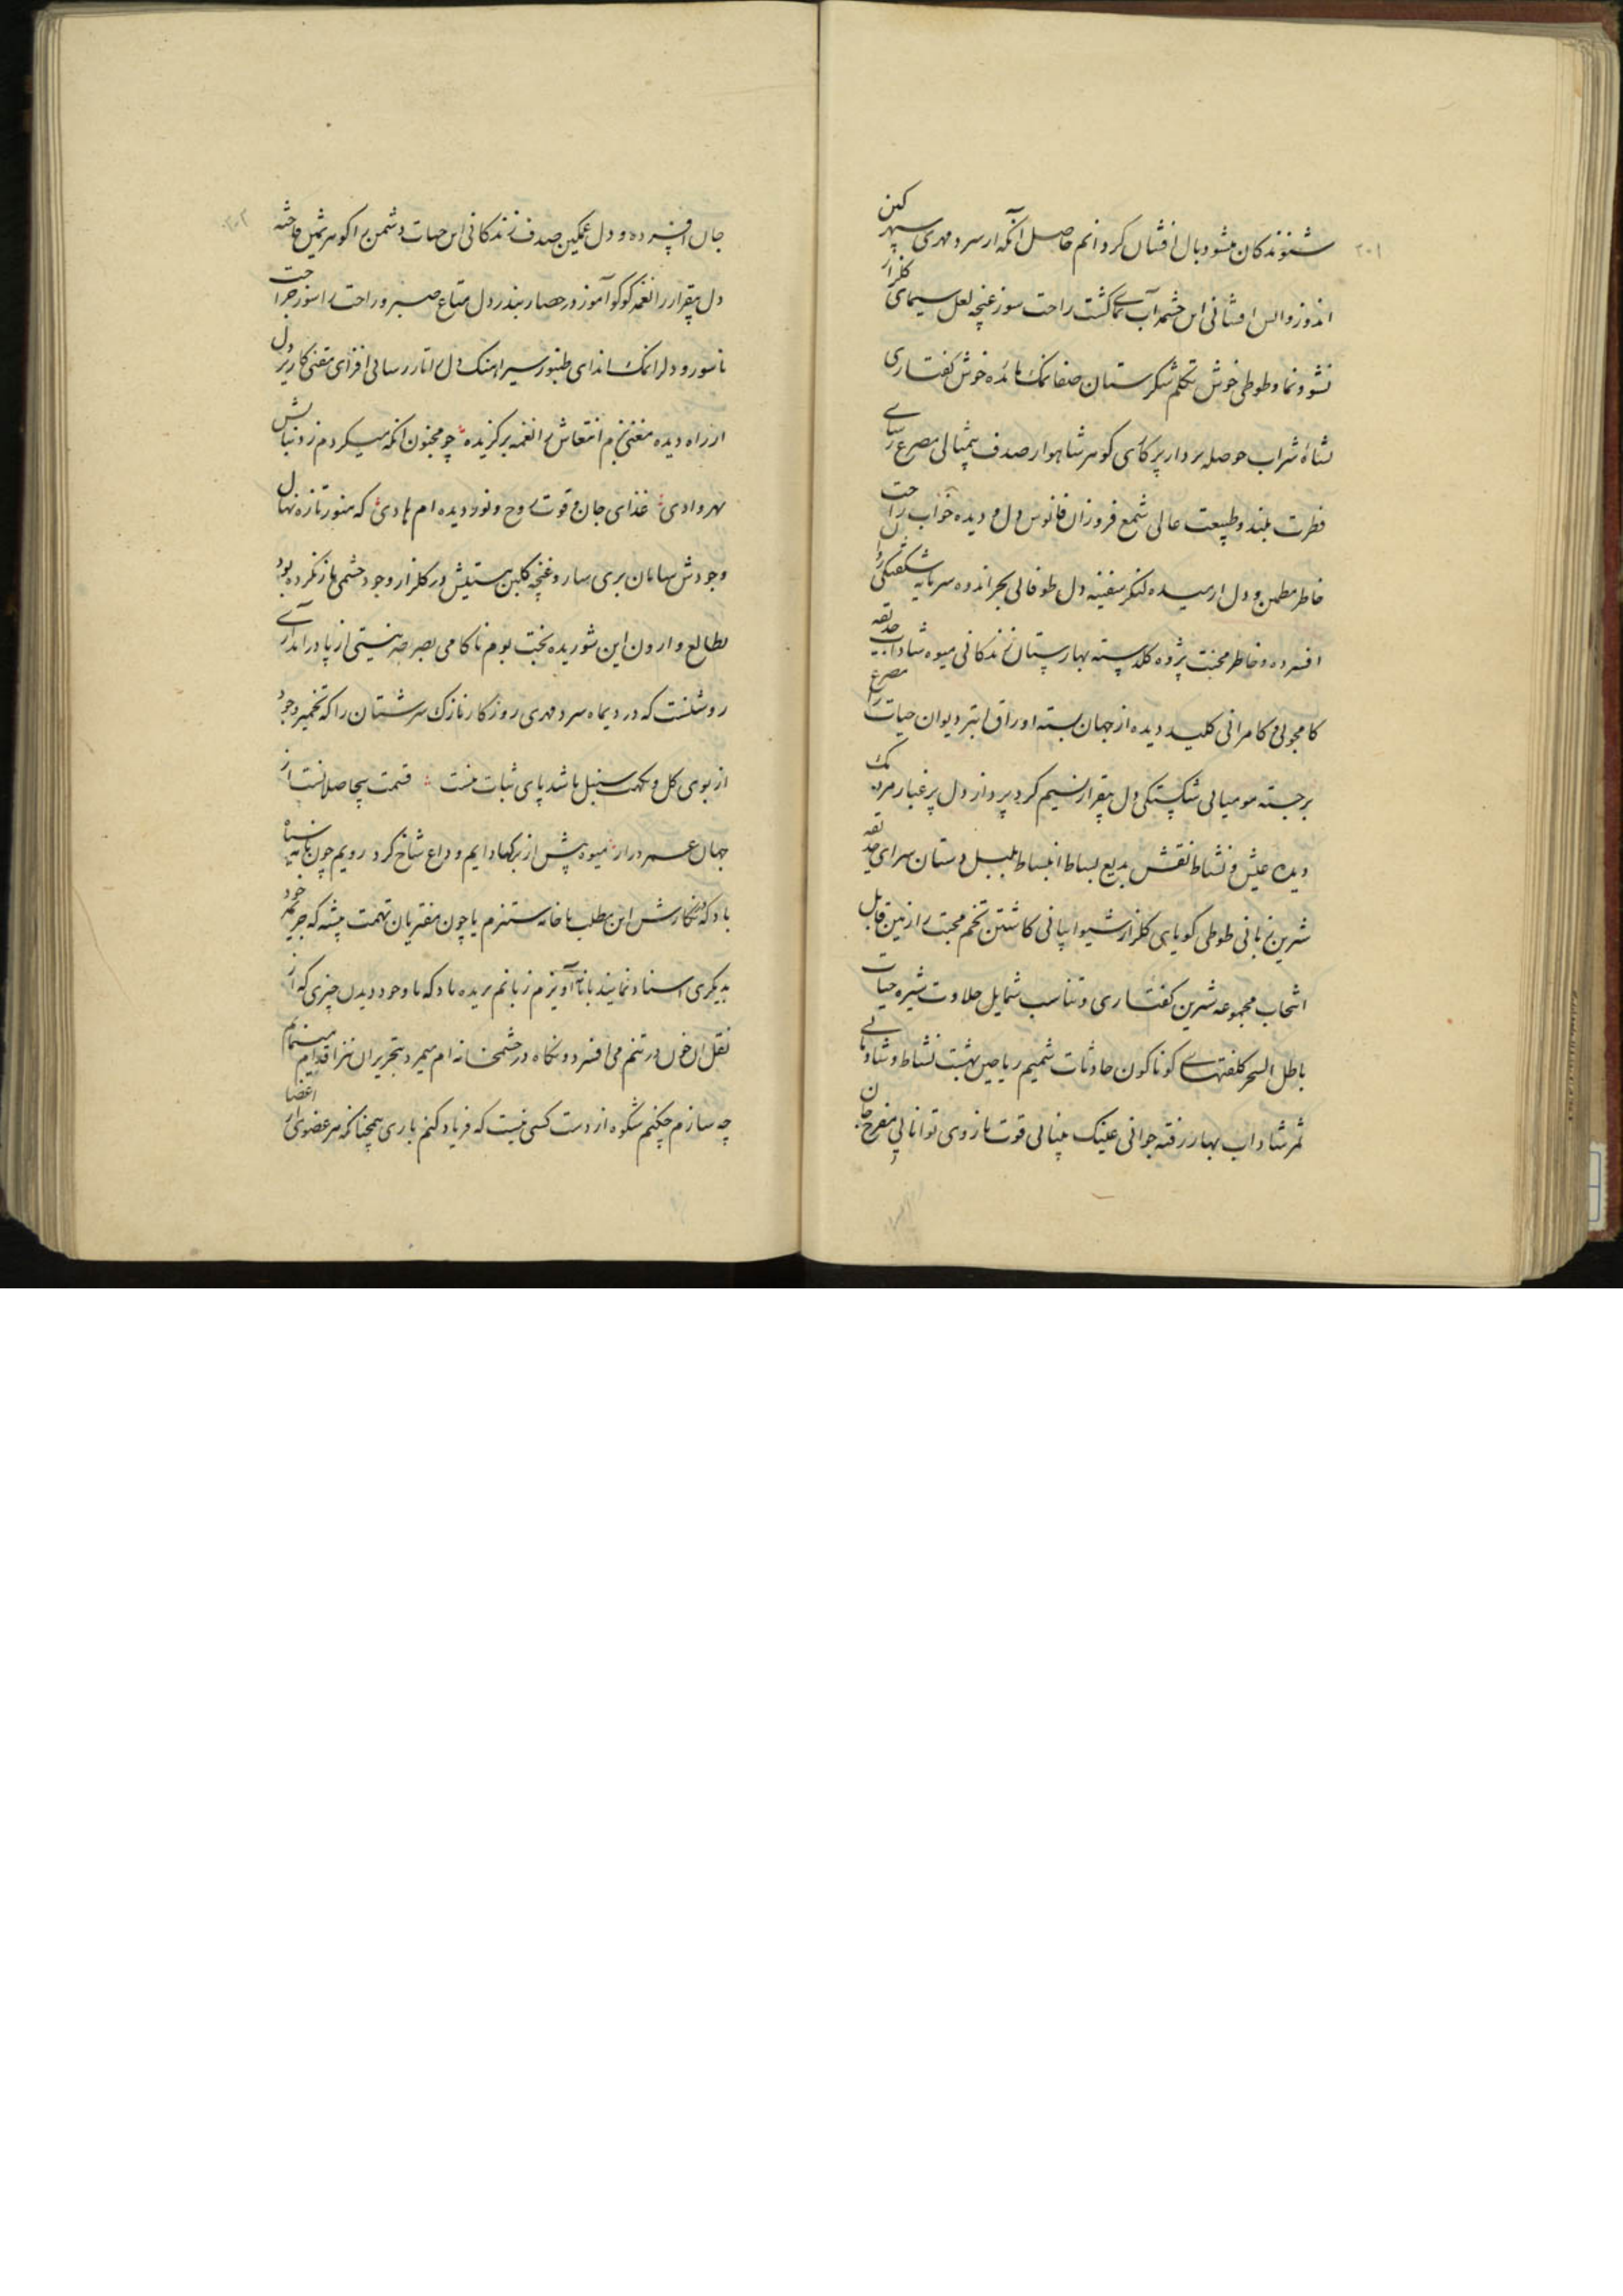 ۲۰۱
شنوندکان میشود بال افشان کردانم حاصل آنکه از سرد مهری سپهر کین
اندوز و اتش افشانی این چشمه آب کشت راحت سوز غنچه لعل سیمای گلزار
نشو و نما و طوطی خوش تکلم شکرستان صفا نمک مائده خوش گفتاری
نشاۀ شراب حوصله بردار پرکاری گوهر شاهوار صدف بیمثالی مصرع رسای
فطرت بلند و طبیعت عالی شمع فروزان فانوس دل و دیده خواب راحت
خاطر مطمن و دل ارمیده لنگر سفینه دل طوفانی بحر اندوه سرمایه شکفتگی
افسرده و خاطر محنت پژوه گلدسته بهارستان زندگانی میوه شاداب حدیقه
کامجوئی و کامرانی کلید دیده از جهان بسته اوراق ابتر دیوان حیات را مصرع
برجسته مومیائی شکستگی دل بیقرار نسیم گرد پرداز دل پر غبار مردمک
دیده عیش و نشاط نقش بدیع بساط انبساط بلبل دستان سرای حدیقه
شیرین زبانی طوطی گویای گلزار شیوا بیانی کاشتن تخم محبت را زمین قابل
انتخاب مجموعه شیرین گفتاری و تناسب شمایل حلاوت شیره حیات
باطل السحر کلفتهای گوناگون حادثات شمیم ریاحین بهشت نشاط و شادمانی
ثمر شاداب بهار رفته جوانی عینک بینائی قوت بازوی توانائی مفرح جان
جان افسرده و دل غمگین صدف زندگانی این حیات دشمن را گوهر ثمین
دل بیقرار را نغمه کوکو آموز در حصار بندر دل متاع صبر و راحت را سوز جراحت
ناسور و دلرا نمک اندای طنبور سیر اهنک دل تار رسائی افزای مغنی کار بر دل
از راه دیده مغنی بزم انتعاش را نغمه برگزیده چو مجنون آنکه میکردم ز دنبالش
بهر وادی غذای جان و قوت روح و نور دیده ام هادی که هنوز تازه نهال
وجودش سامان بری بهار و غنچه گلبن هستیش در گلزار وجود چشمی باز نکرده بود
بطالع وارون این شوریده بخت بوم ناکامی بصرصر نیستی از پا در امد آری
روشنست که در دیماه سرد مهری روزگار نازک سرشتان را که تخمیر وجود
از بوی گل و نکهت سنبل باشد پای ثبات سست قسمت بیحاصلانست از
جهان عمر دراز میوه پیش از برگها دایم وداع شاخ کرد رویم چون نامه سیاه
باد که در نگارش این مطلب با خامه ستیزم یا چون مفتریان تهمت پیشه که جریمه خود
بدیگری اسناد نمایند بانامه آویزم زبانم بریده باد که با وجود دیدن چیزی که از
نقل ان خون در تنم می افسرد و نگاه در چشمخانه ام میمرد بتحریر ان نیز اقدام مینمایم
چه سازم چکنم شکوه از دست کسی نیست که فریاد کنم باری همچنانکه هر عضوی از اعضا